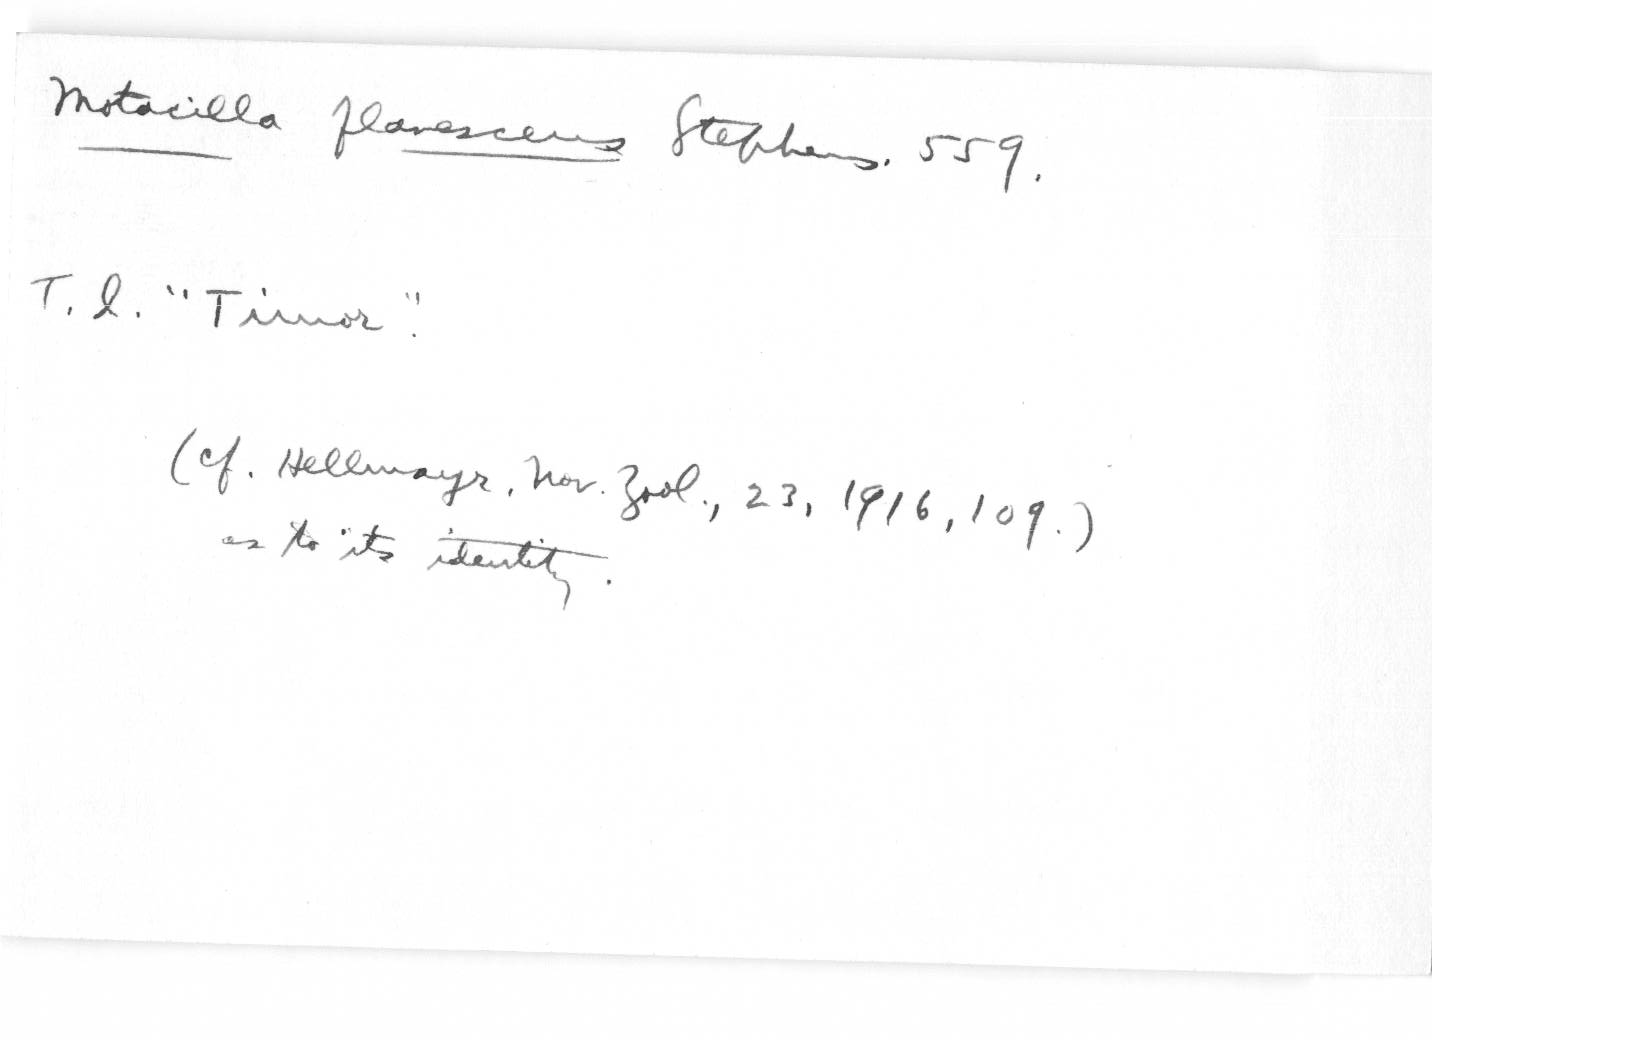 Motacilla flavescens Stephens. 559.
T. l. "Timor".
(cf. Hellmayr, Nov. Zool., 23, 1916, 109.)
as to its identity.